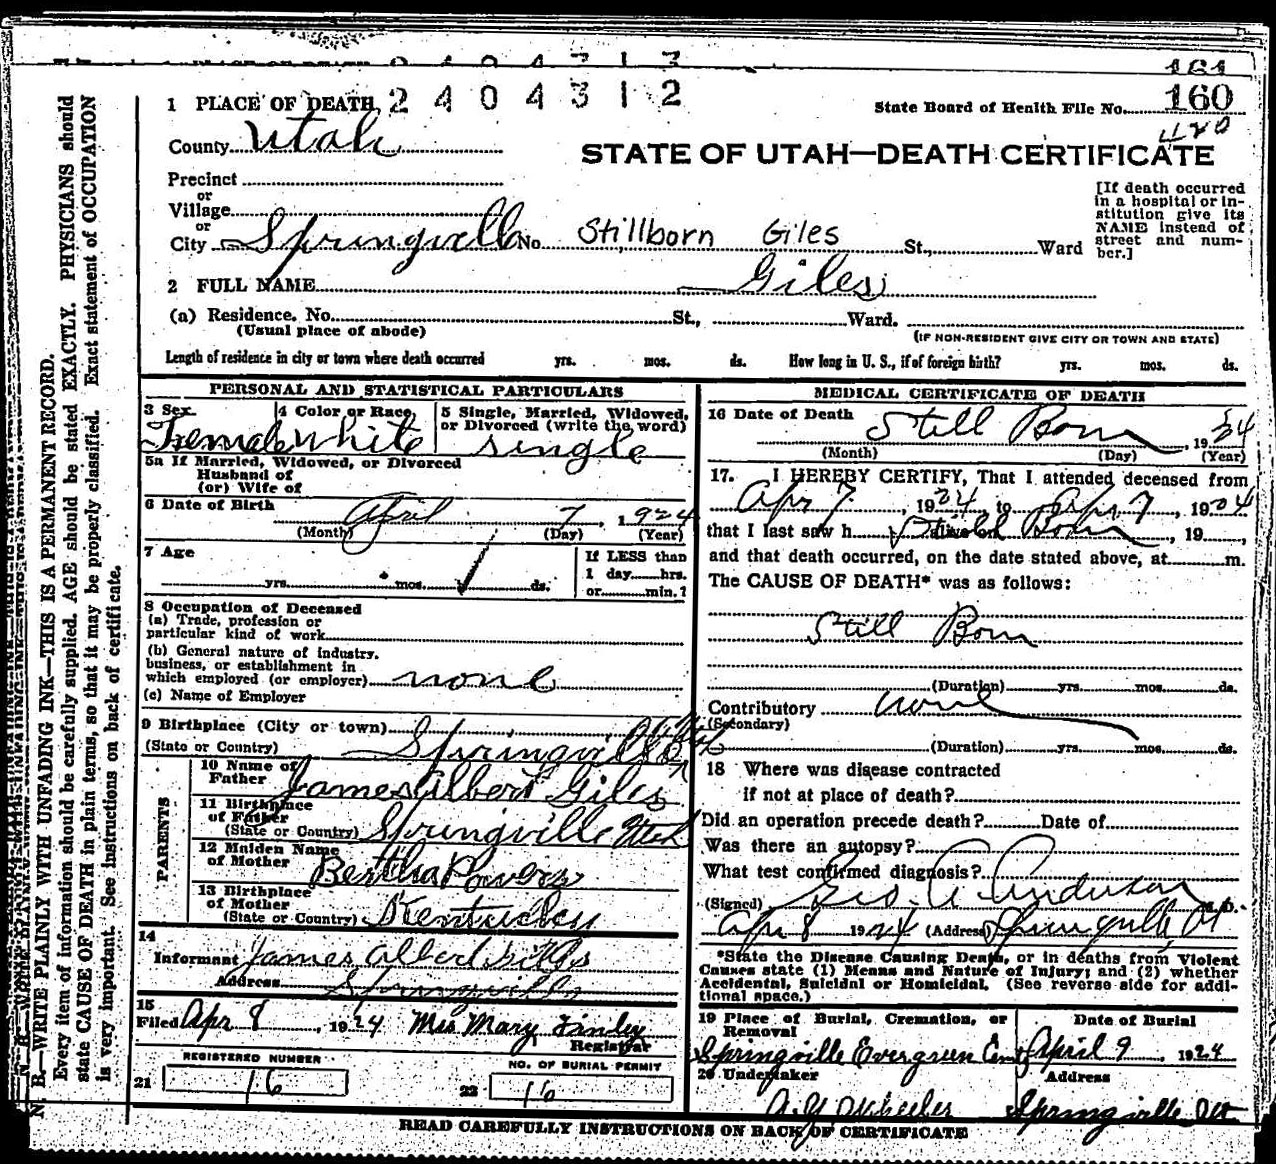 161
2404313
1 PLACE OF DEATH 2404312
State Board of Health File No. 160
1120
County Utah
STATE OF UTAH—DEATH CERTIFICATE
Precinct
or
Village
or
City Springville No. Stillborn Giles St., Ward
[If death occurred
in a hospital or in-
stitution give its
NAME instead of
street and num-
ber.]
2 FULL NAME Giles
(a) Residence. No. St., Ward.
(Usual place of abode)
(IF NON-RESIDENT GIVE CITY OR TOWN AND STATE)
Length of residence in city or town where death occurred yrs. mos. ds. How long in U. S., if of foreign birth? yrs. mos. ds.
PERSONAL AND STATISTICAL PARTICULARS
3 Sex 4 Color or Race 5 Single, Married, Widowed,
or Divorced (write the word)
Female White single
5a If Married, Widowed, or Divorced
Husband of
(or) Wife of
6 Date of Birth
April 7, 1924
(Month) (Day) (Year)
7 Age
If LESS than
1 day hrs.
yrs. mos. ds. or min.?
8 Occupation of Deceased
(a) Trade, profession or
particular kind of work
(b) General nature of industry,
business, or establishment in
which employed (or employer) none
(c) Name of Employer
9 Birthplace (City or town)
(State or Country) Springville Utah
PARENTS
10 Name of
Father James Albert Giles
11 Birthplace
of Father
(State or Country) Springville Utah
12 Maiden Name
of Mother Bertha Powers
13 Birthplace
of Mother
(State or Country) Kentucky
14
Informant James Albert Giles
Address Springville
15
Filed Apr 8, 1924 Mrs Mary Finley
Registrar
REGISTERED NUMBER
21 16
NO. OF BURIAL PERMIT
22 16
MEDICAL CERTIFICATE OF DEATH
16 Date of Death Still Born, 1924
(Month) (Day) (Year)
17. I HEREBY CERTIFY, That I attended deceased from
Apr 7, 1924, to Apr 7, 1924
that I last saw h alive on Still Born, 19
and that death occurred, on the date stated above, at m.
The CAUSE OF DEATH* was as follows:
Still Born
(Duration) yrs. mos. ds.
Contributory none
(Secondary)
(Duration) yrs. mos. ds.
18 Where was disease contracted
if not at place of death?
Did an operation precede death? Date of
Was there an autopsy?
What test confirmed diagnosis?
(Signed) Geo. A. Anderson M. D.
Apr 8 1924 (Address) Springville, Ut
*State the Disease Causing Death, or in deaths from Violent
Causes state (1) Means and Nature of Injury; and (2) whether
Accidental, Suicidal or Homicidal. (See reverse side for addi-
tional space.)
19 Place of Burial, Cremation, or
Removal
Date of Burial
Springville Evergreen Cem April 9, 1924
20 Undertaker Address
A. Y. Wheeler Springville, Ut
READ CAREFULLY INSTRUCTIONS ON BACK OF CERTIFICATE
N. B.—WRITE PLAINLY WITH UNFADING INK—THIS IS A PERMANENT RECORD.
Every item of information should be carefully supplied. AGE should be stated EXACTLY. PHYSICIANS should
state CAUSE OF DEATH in plain terms, so that it may be properly classified. Exact statement of OCCUPATION
is very important. See instructions on back of certificate.